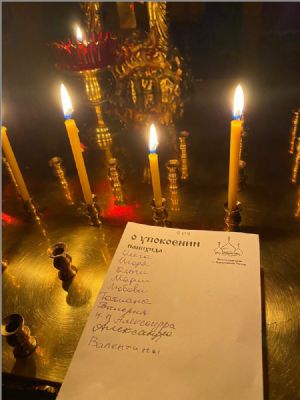 О УПОКОЕНИИ
панихида
Олега
Игоря
Ольги
Марии
Любови
Татиана
Валерия
Александра
Александра
Валентины